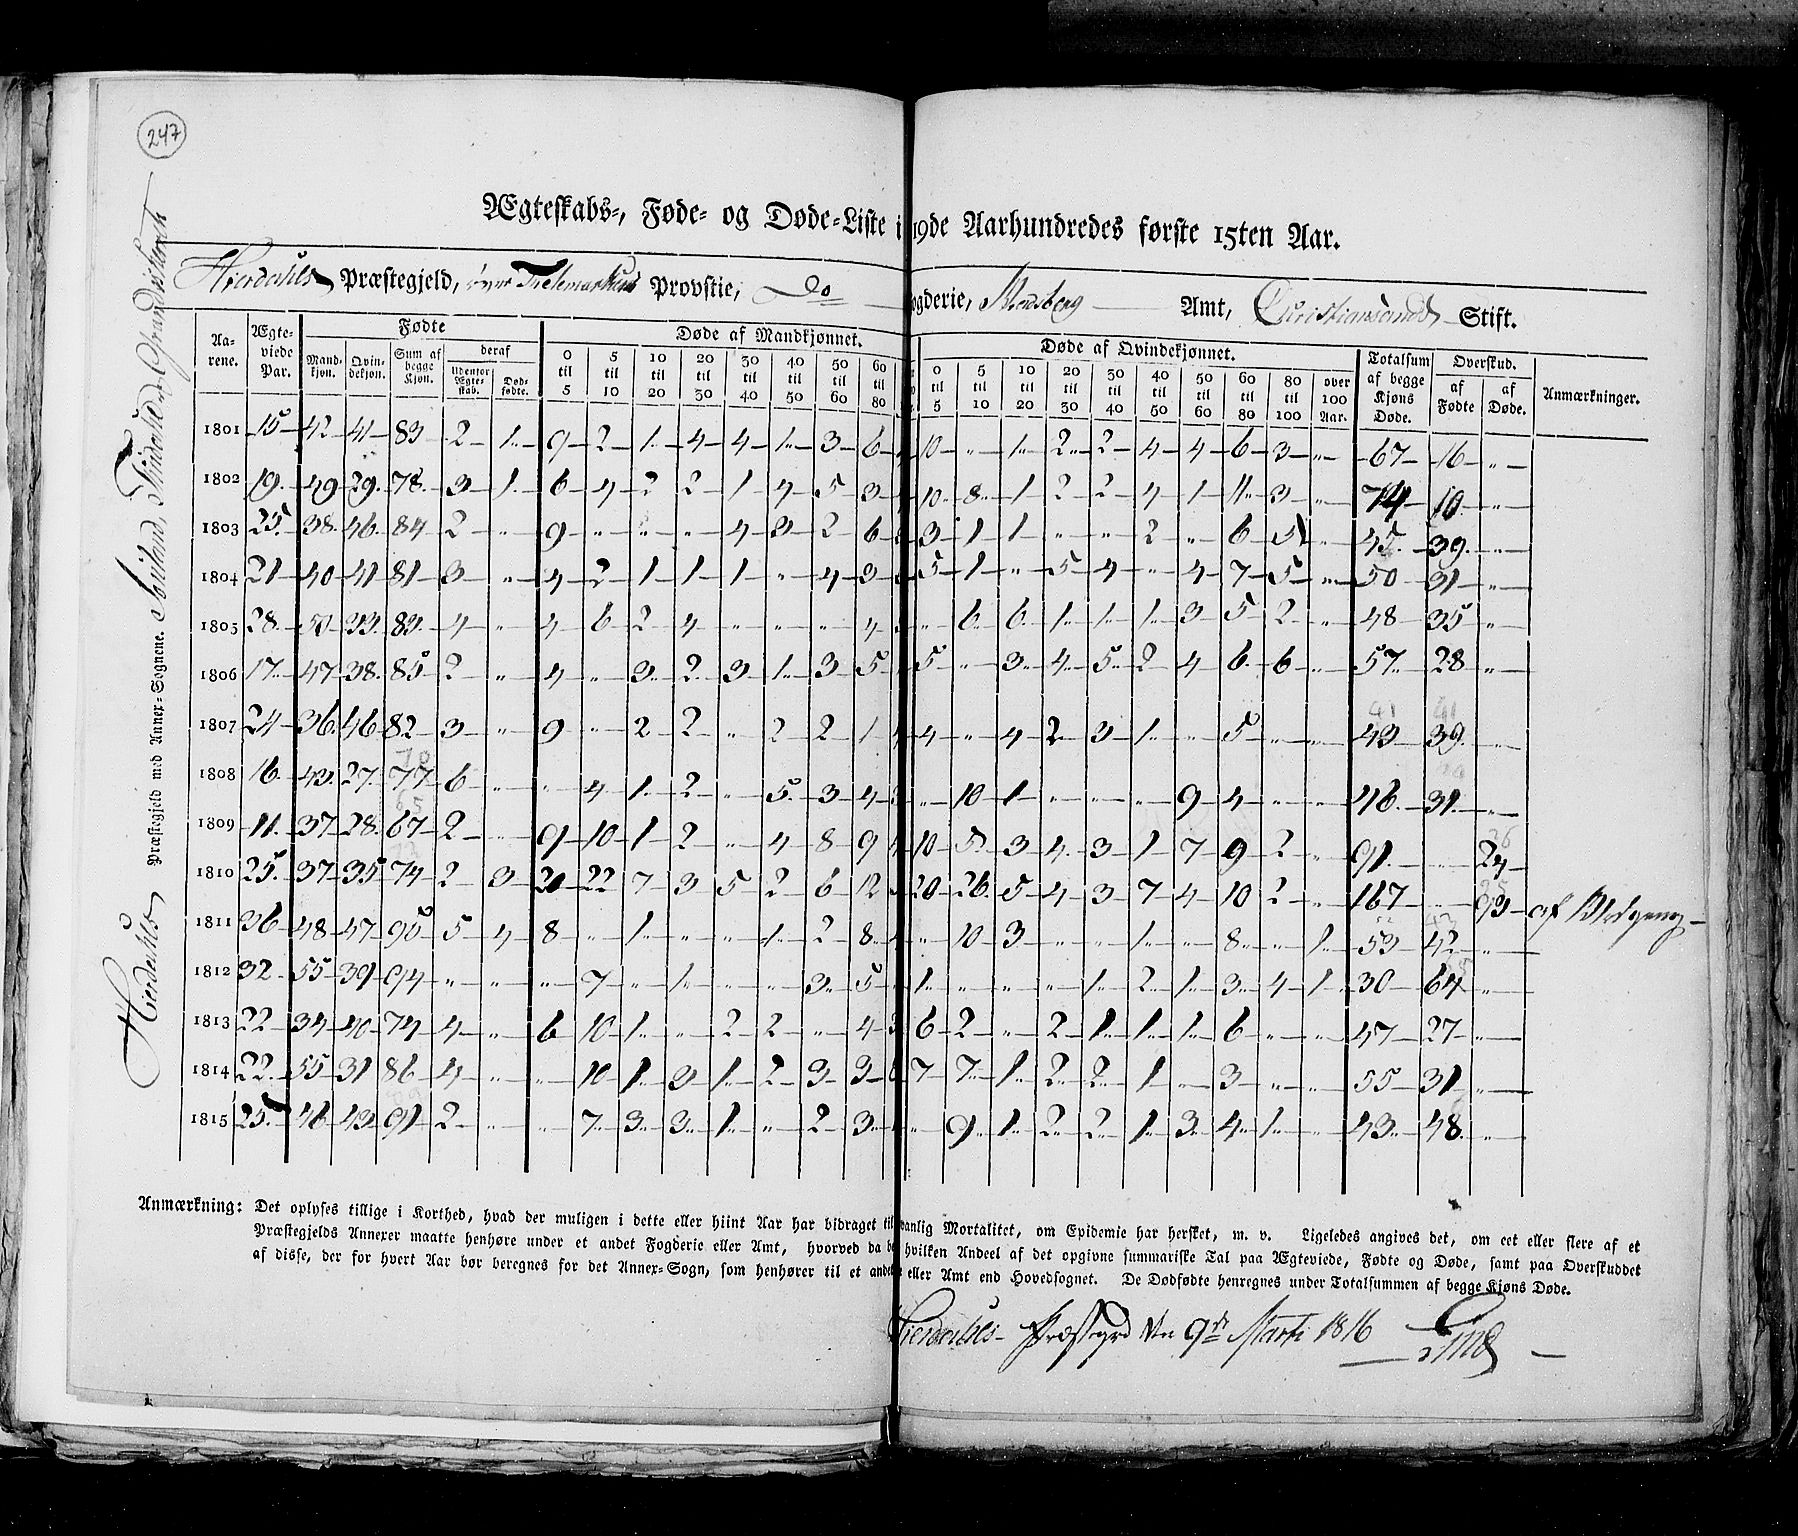 247
Ægteskabs-, Føde- og Døde-Liste i 19de Aarhundredes første 15ten Aar.
Hierdahls Præstegjeld, øvre Tellemarkens Provstie, Do ogderie, Amt, Christiansands Stift.
Hierdahls Præstegjeld med Annex-Sognene.
Aa-rene. Ægte-viede Par. Fødte Døde af Mandkjønnet. Døde af Qvindekjønnet. Totalsum af begge Kjøns Døde. Overskud. Anmærkninger.
Mand-kjøn. Qvin-dekjøn. Sum af begge Kjøn. deraf Udenfor Ægte-skab. Død-fødte. 0 til 5 5 til 10 10 til 20 20 til 30 30 til 40 40 til 50 50 til 60 60 til 80 0 til 5 5 til 10 10 til 20 20 til 30 30 til 40 40 til 50 50 til 60 60 til 80 80 til 100 over 100 Aar. af Fødte af Døde.
1801 15 42 41 83 2 1 9 2 1 4 4 1 3 6 10 „ 1 2 2 4 4 6 3 „ 67 16 „
1802 19 49 29 78 3 1 6 4 2 2 1 4 5 3 10 8 1 2 2 4 1 11 3 „ 10 „
1803 25 38 46 84 2 „ 9 „ „ „ 4 3 2 6 3 1 1 „ „ 2 „ 6 5 „ 45 39 „
1804 21 40 41 81 3 „ 4 2 1 1 1 „ 4 3 5 1 „ 5 4 „ 4 7 5 „ 50 31 „
1805 28 50 33 83 4 „ 4 6 2 4 „ „ „ 4 „ 6 6 1 1 1 3 5 2 „ 48 35 „
1806 17 47 38 85 2 „ 4 „ 3 2 3 1 3 5 5 „ 3 4 5 2 4 6 6 „ 57 28 „
1807 24 36 46 82 3 „ 9 „ 2 2 „ 2 2 1 4 „ 4 2 3 1 „ 5 „ „ 43 39 „
1808 16 43 27 77 6 „ „ 4 1 2 „ 5 3 4 „ 10 1 „ „ „ 9 4 „ „ 46 31 „
1809 11 37 28 67 2 „ 9 10 1 2 „ 4 8 9 10 5 3 4 3 1 7 9 2 „ 91 „ 24
1810 25 37 35 74 2 3 20 22 7 3 5 2 6 12 20 26 5 4 3 7 4 10 2 „ 167 „ 93 af Blodgang
1811 36 48 47 95 5 4 8 „ 1 „ „ 1 2 8 „ 10 3 „ „ 1 „ 8 „ 1 53 42 „
1812 32 55 39 94 „ „ „ 7 „ 1 „ „ 3 5 1 „ „ „ 1 2 1 3 4 1 30 64 „
1813 22 34 40 74 4 „ 6 10 1 „ 2 2 „ 4 6 2 „ 2 1 1 1 6 „ „ 47 27 „
1814 22 55 31 86 4 „ „ 10 1 3 1 2 3 3 7 7 1 2 2 1 „ 3 „ „ 55 31 „
1815 25 46 43 91 2 „ „ 7 3 3 1 „ 2 3 „ 9 1 2 2 1 3 4 1 „ 43 48 „
Anmærkning: Det oplyses tillige i Korthed, hvad der muligen i dette eller hiint Aar har bidraget til vanlig Mortalitet, om Epidemie har hersket, m. v. Ligeledes angives det, om eet eller flere af et
Præstegjelds Annexer maatte henhøre under et andet Fogderie eller Amt, hvorved da hvilken Andeel af det opgivne summariske Tal paa Ægteviede, Fødte og Døde, samt paa Overskuddet
af disse, der for hvert Aar bør beregnes for det Annex-Sogn, som henhører til et andet eller Amt end Hovedsognet. De Dødfødte henregnes under Totalsummen af begge Kjøns Døde.
Hierdahls Præstgrd den 9de Marti 1816